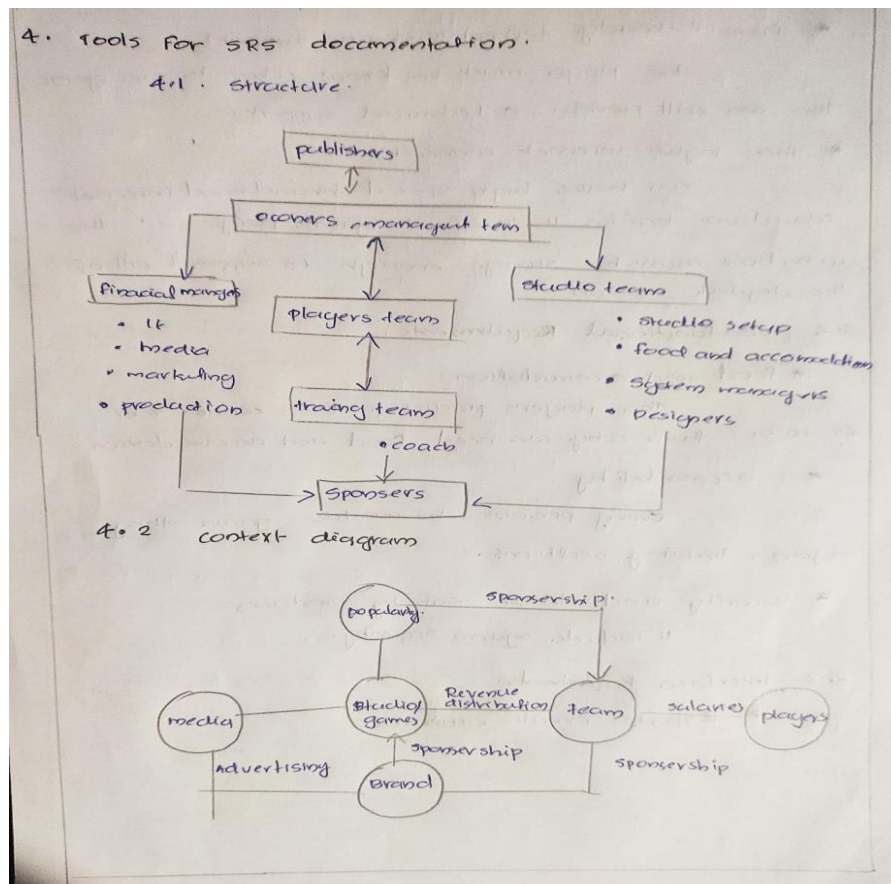 4. Tools For SRS documentation.
4.1. Structure.
publishers
owners managaut tem
finacial manger
• It
• media
• marketing
• production
players team
traing team
• coach
studio team
• studio setup
• food and accomoddation
• System managers
• Designers
Sponsers
4.2 context diagram
popularity.
sponsership.
media
Studio/
games
Revenue
distribution
team
salaries
players
Advertising
sponsership
Brand
sponsership